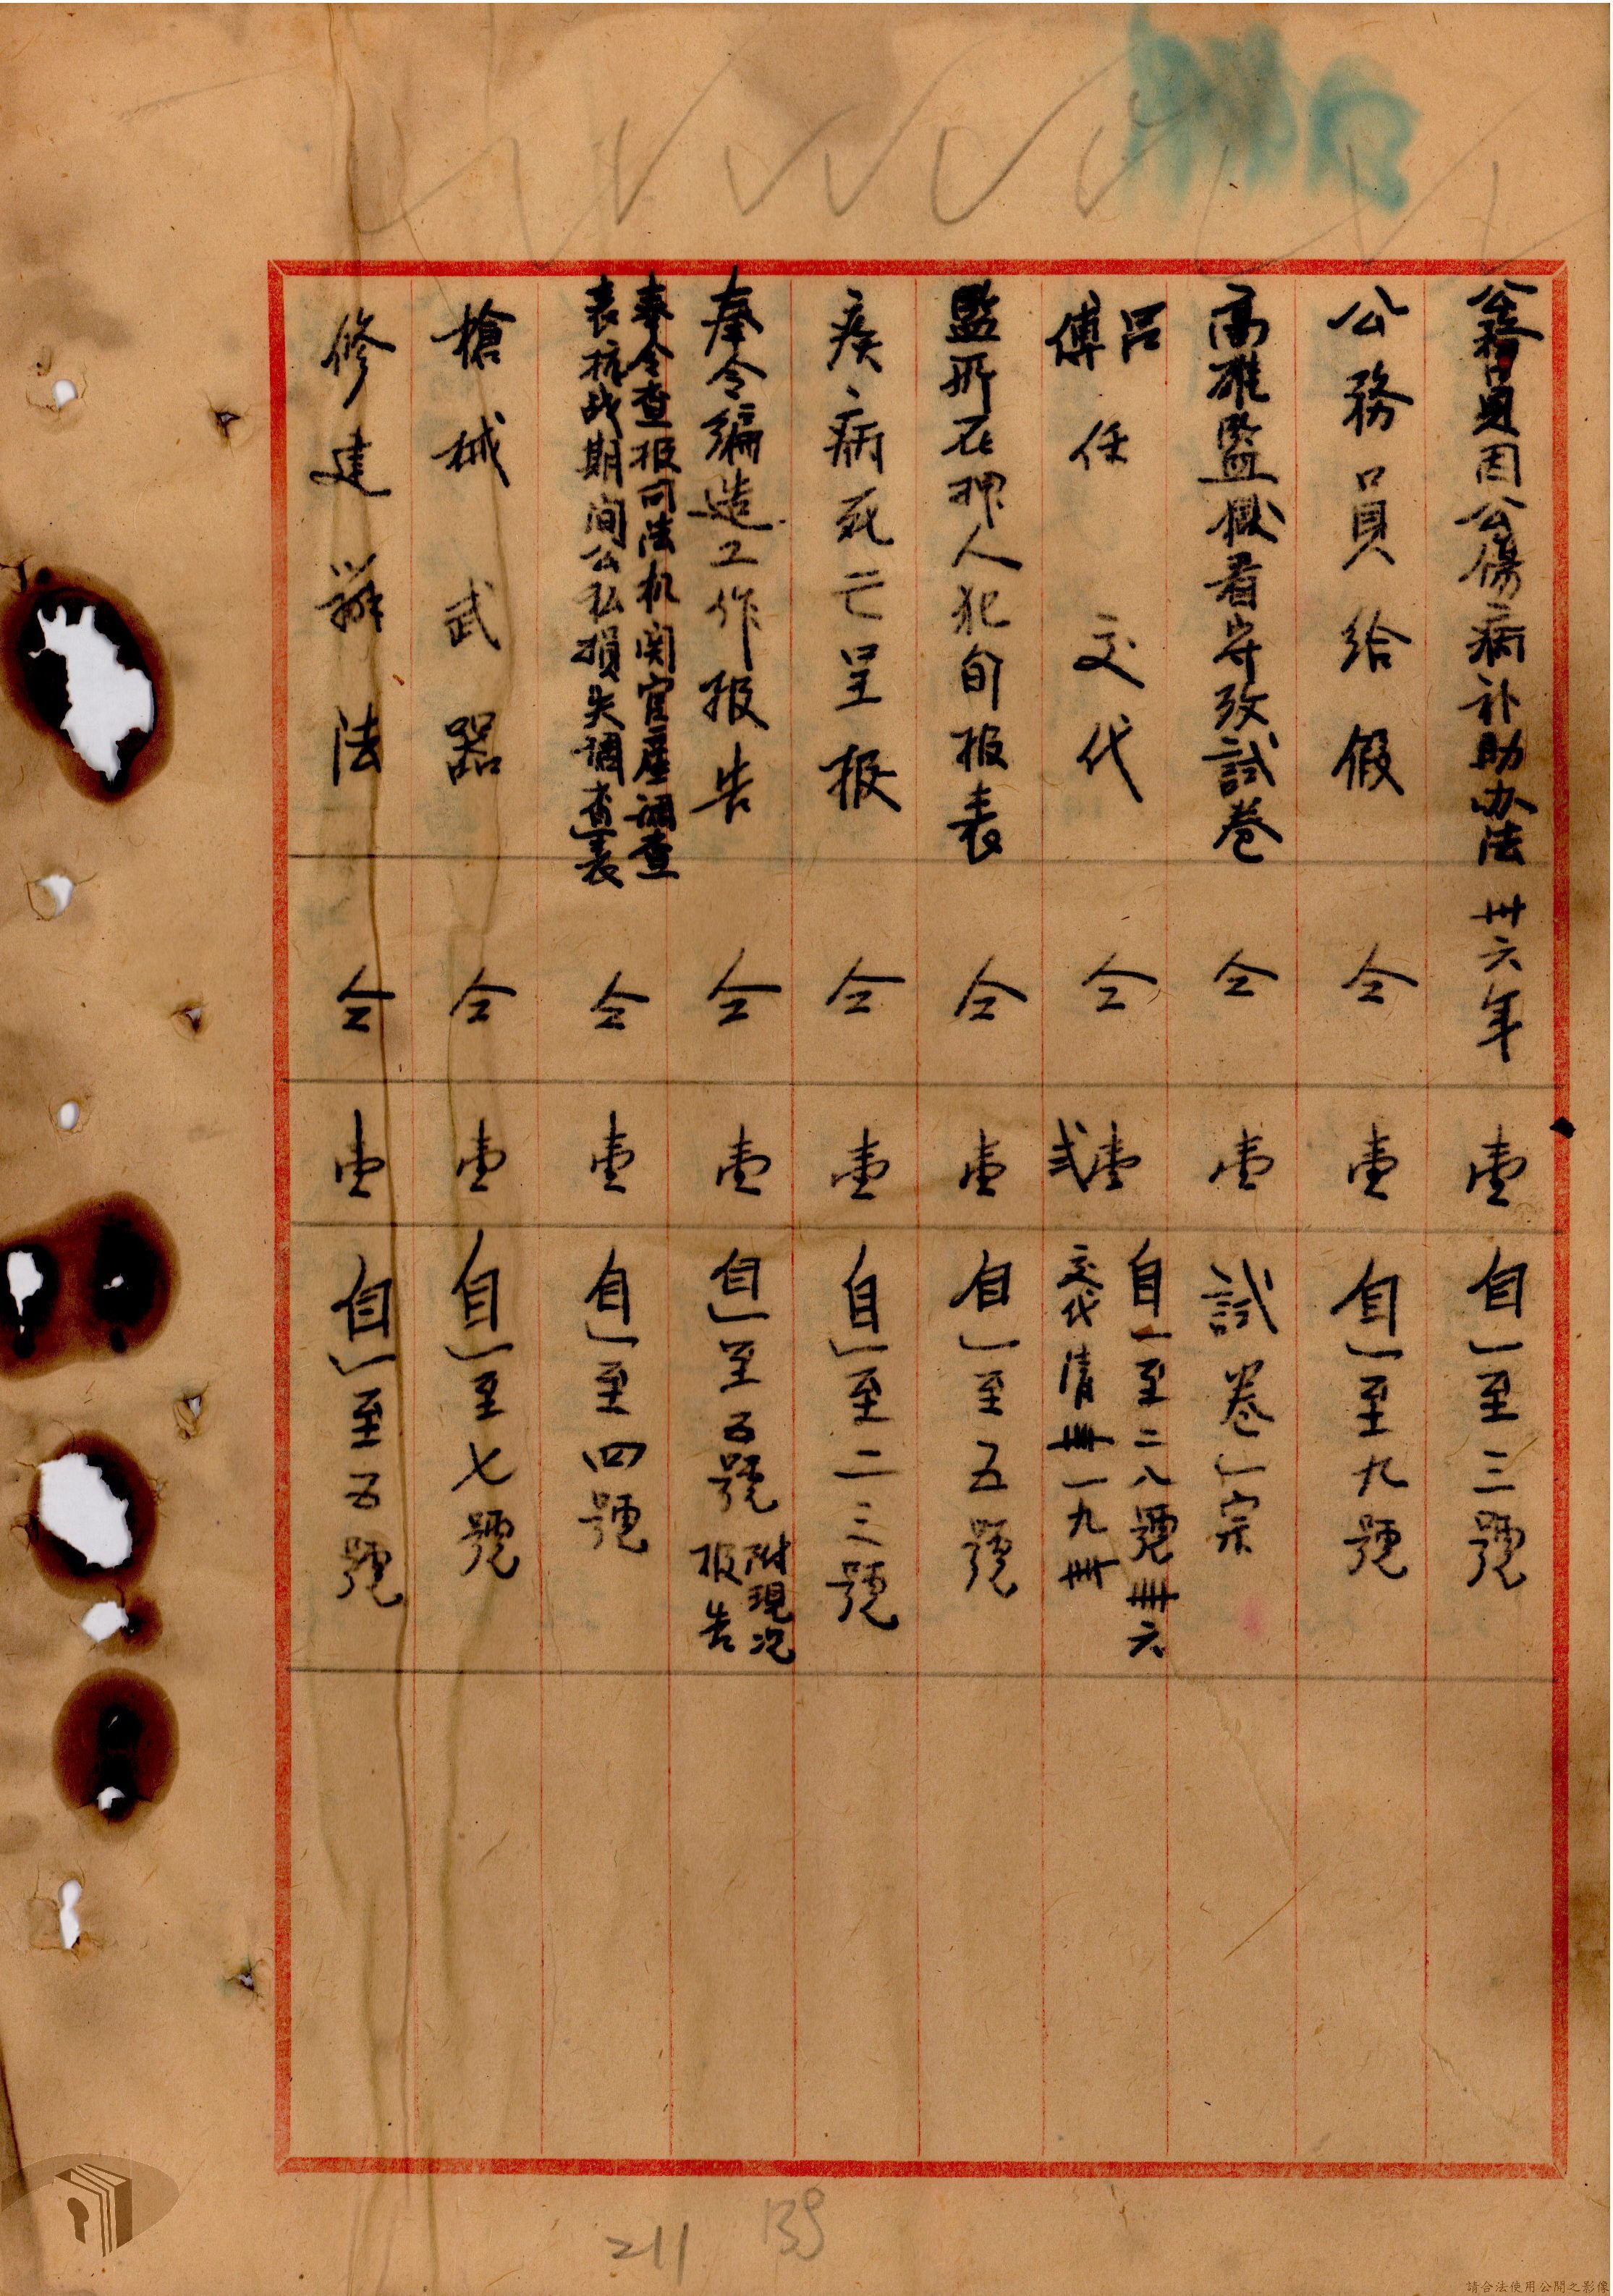 公務員因公傷病补助办法 卅六年 壹 自一至三號
公務員給假 仝 壹 自一至九號
高雄監獄看守攷試卷 仝 壹 試卷一宗
呂傅任交代 仝 壹弍 自一至二八號卌六
交代清卌一九卌
監所在押人犯旬报表 仝 壹 自一至五號
疾病死亡呈报 仝 壹 自一至二三號
奉令編造工作报告 仝 壹 自一至五號 附現况
报告
奉令查报司法机関官産調查
表抗战期间公私損失調查表 仝 壹 自一至四號
槍械武器 仝 壹 自一至七號
修建辦法 仝 壹 自一至五號
211 139
請合法使用公開之影像